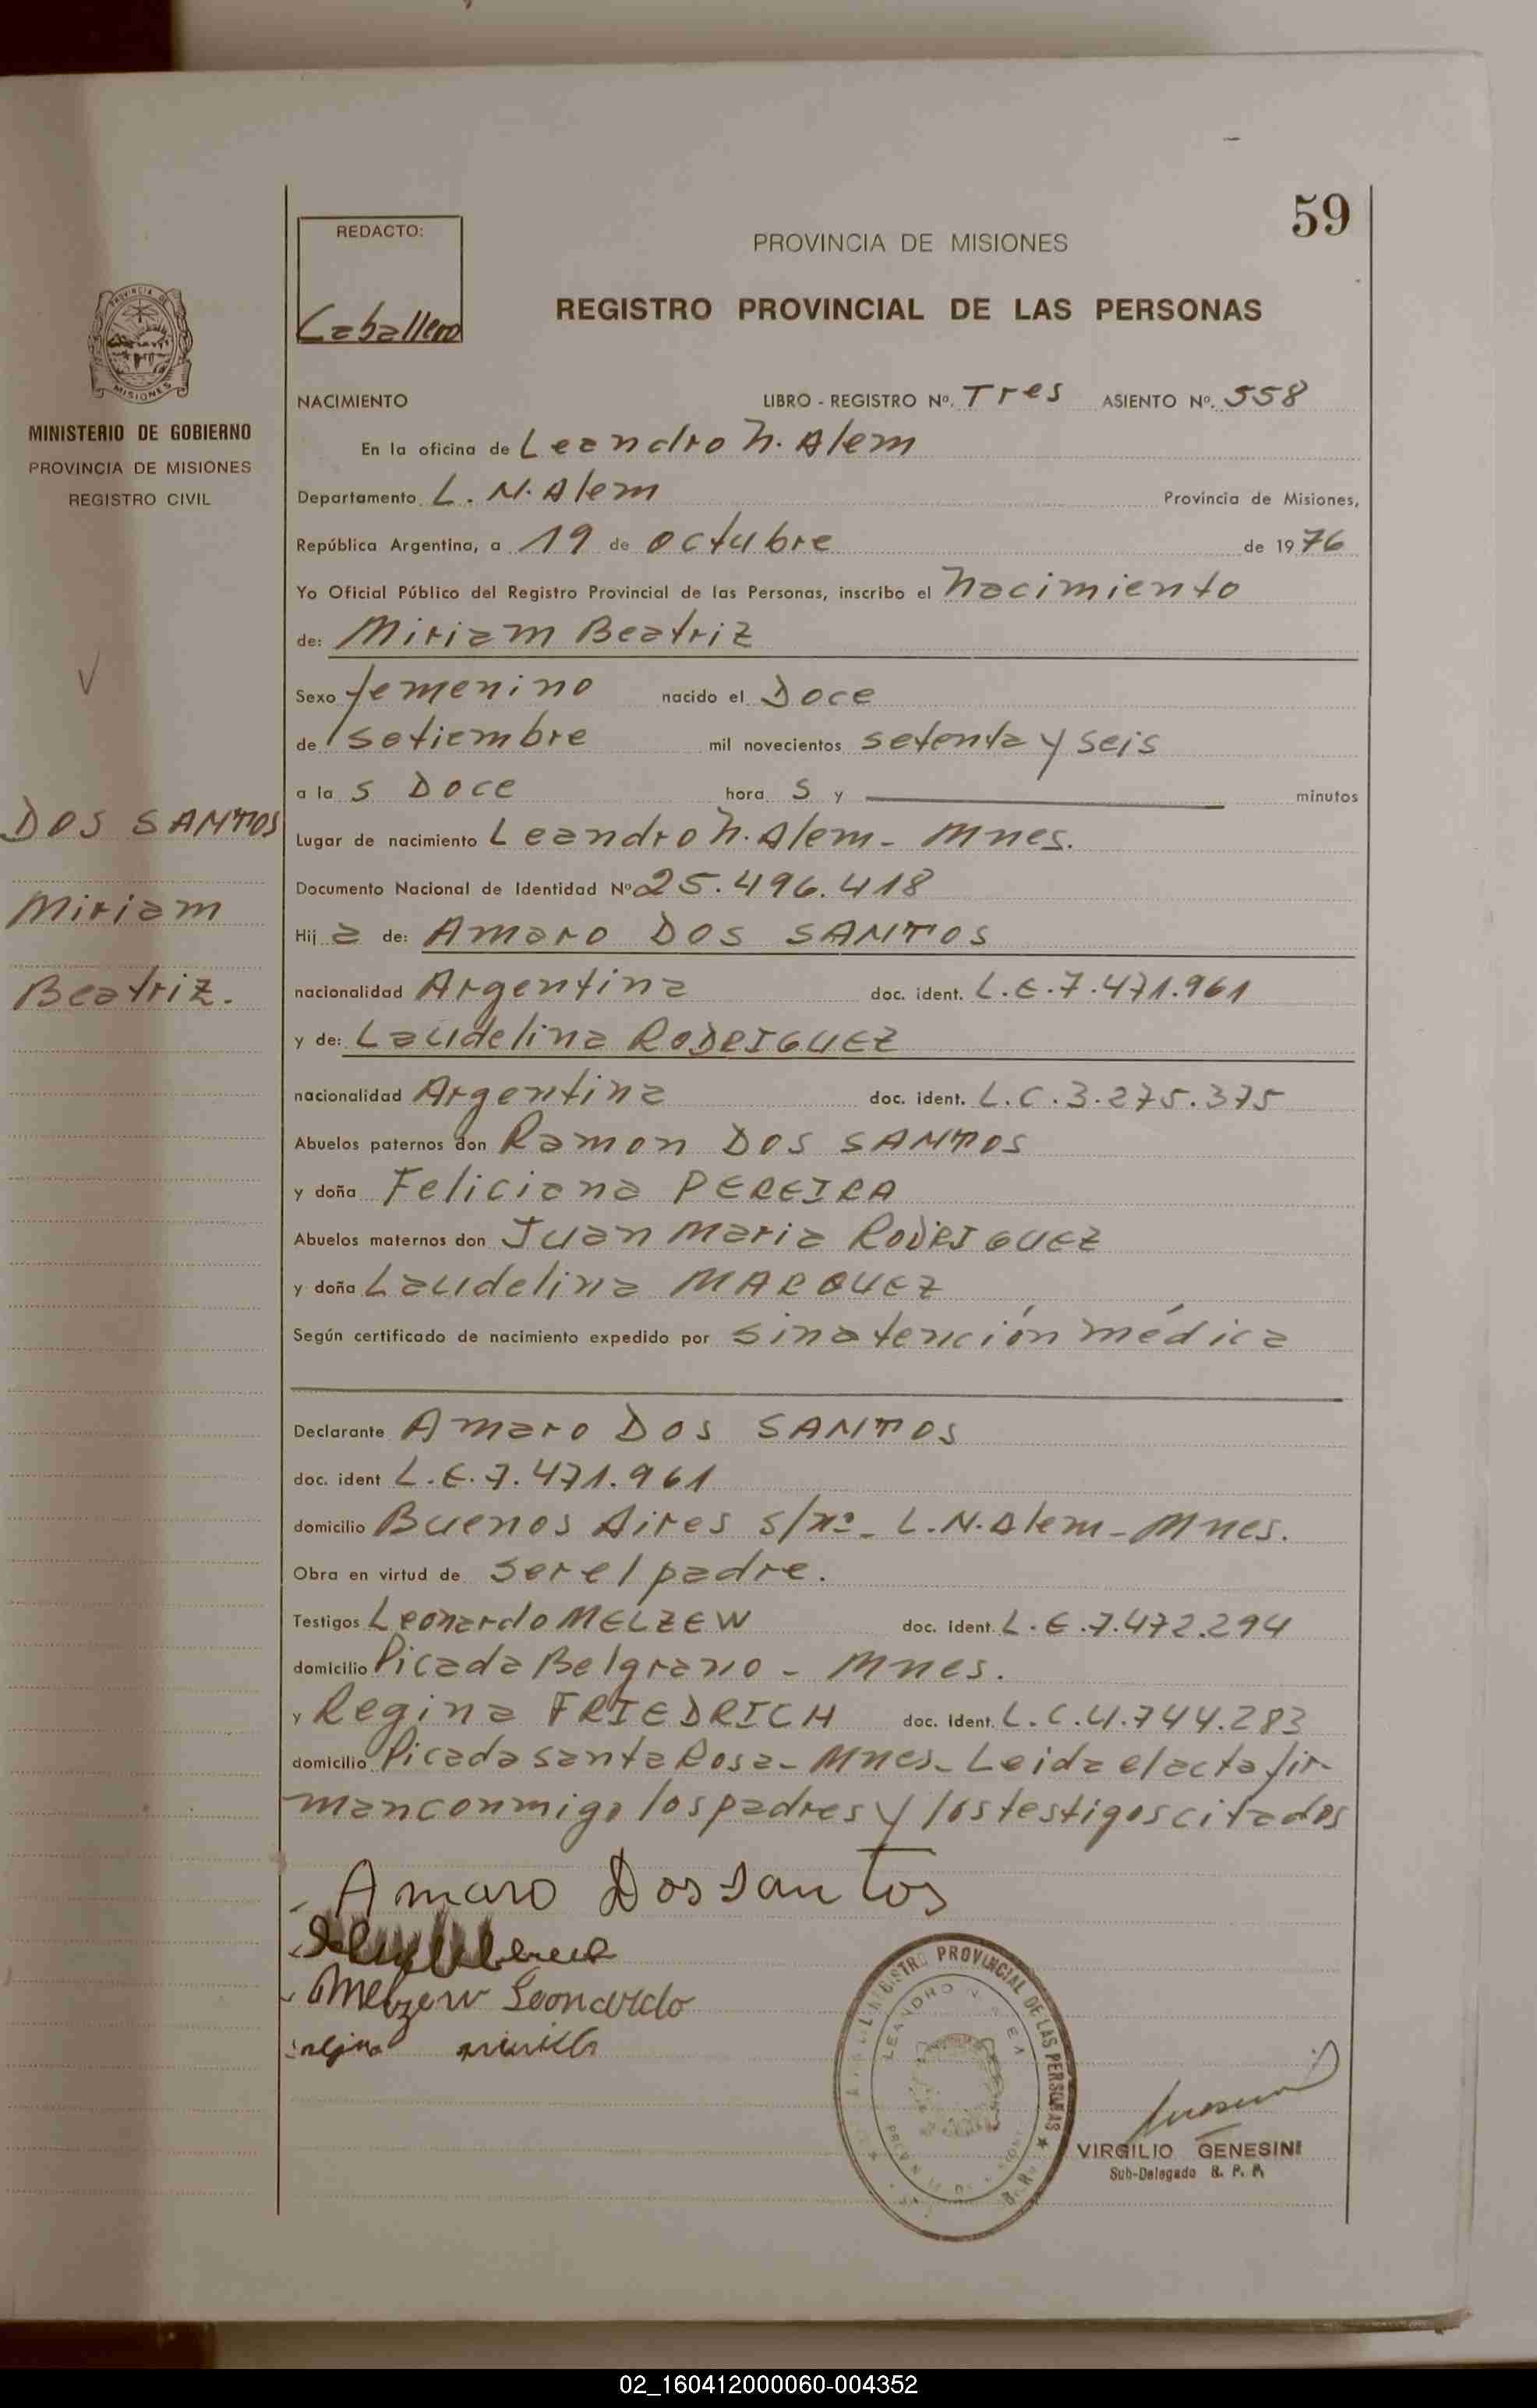 59
REDACTO:
Caballero
PROVINCIA DE MISIONES
REGISTRO PROVINCIAL DE LAS PERSONAS
PROVINCIA DE
MISIONES
MINISTERIO DE GOBIERNO
PROVINCIA DE MISIONES
REGISTRO CIVIL
DOS SANTOS
Miriam
Beatriz.
NACIMIENTO LIBRO - REGISTRO Nº. Tres ASIENTO Nº. 558
En la oficina de Leandro N. Alem
Departamento L. N. Alem Provincia de Misiones,
República Argentina, a 19 de octubre de 1976
Yo Oficial Público del Registro Provincial de las Personas, inscribo el Nacimiento
de: Miriam Beatriz
Sexo femenino nacido el Doce
de setiembre mil novecientos setenta y seis
a la s Doce hora s y minutos
Lugar de nacimiento Leandro N. Alem - Mnes.
Documento Nacional de Identidad Nº 25.496.418
Hij a de: Amaro DOS SANTOS
nacionalidad Argentina doc. ident. L.E.7.471.961
y de: Laudelina RODRIGUEZ
nacionalidad Argentina doc. ident. L.C.3.275.375
Abuelos paternos don Ramon DOS SANTOS
y doña Feliciana PEREIRA
Abuelos maternos don Juan Maria RODRIGUEZ
y doña Laudelina MARQUEZ
Según certificado de nacimiento expedido por sin atención médica
Declarante Amaro DOS SANTOS
doc. ident L.E.7.471.961
domicilio Buenos Aires s/nº - L.N.Alem - Mnes.
Obra en virtud de ser el padre.
Testigos Leonardo MELZEW doc. ident. L.E.7.472.294
domicilio Picada Belgrano - Mnes.
y Regina FRIEDRICH doc. ident. L.C.4.744.283
domicilio Picada Santa Rosa - Mnes - Leida el acta fir-
man conmigo los padres y los testigos citados
Amaro Dos Santos
Melzew Leonardo
REGISTRO PROVINCIAL DE LAS PERSONAS
LEANDRO N. ALEM
VIRGILIO GENESINI
Sub-Delegado R. P. P.
02_160412000060-004352